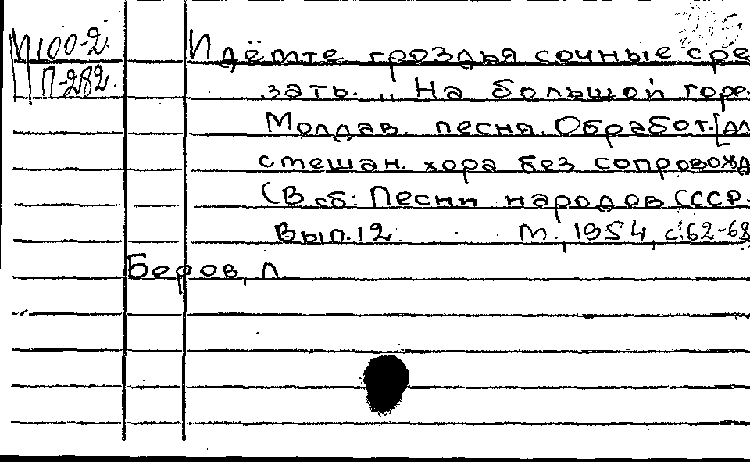 М100-2
П-282
Идёмте гроздья сочные сре
зать. „На большой горе.
Молдав. песня. Обработ. [дл
смешан. хора без сопровожд
(В сб: Песни народов СССР.
Вып.12 М., 1954, с.62-68
Беров, Л.